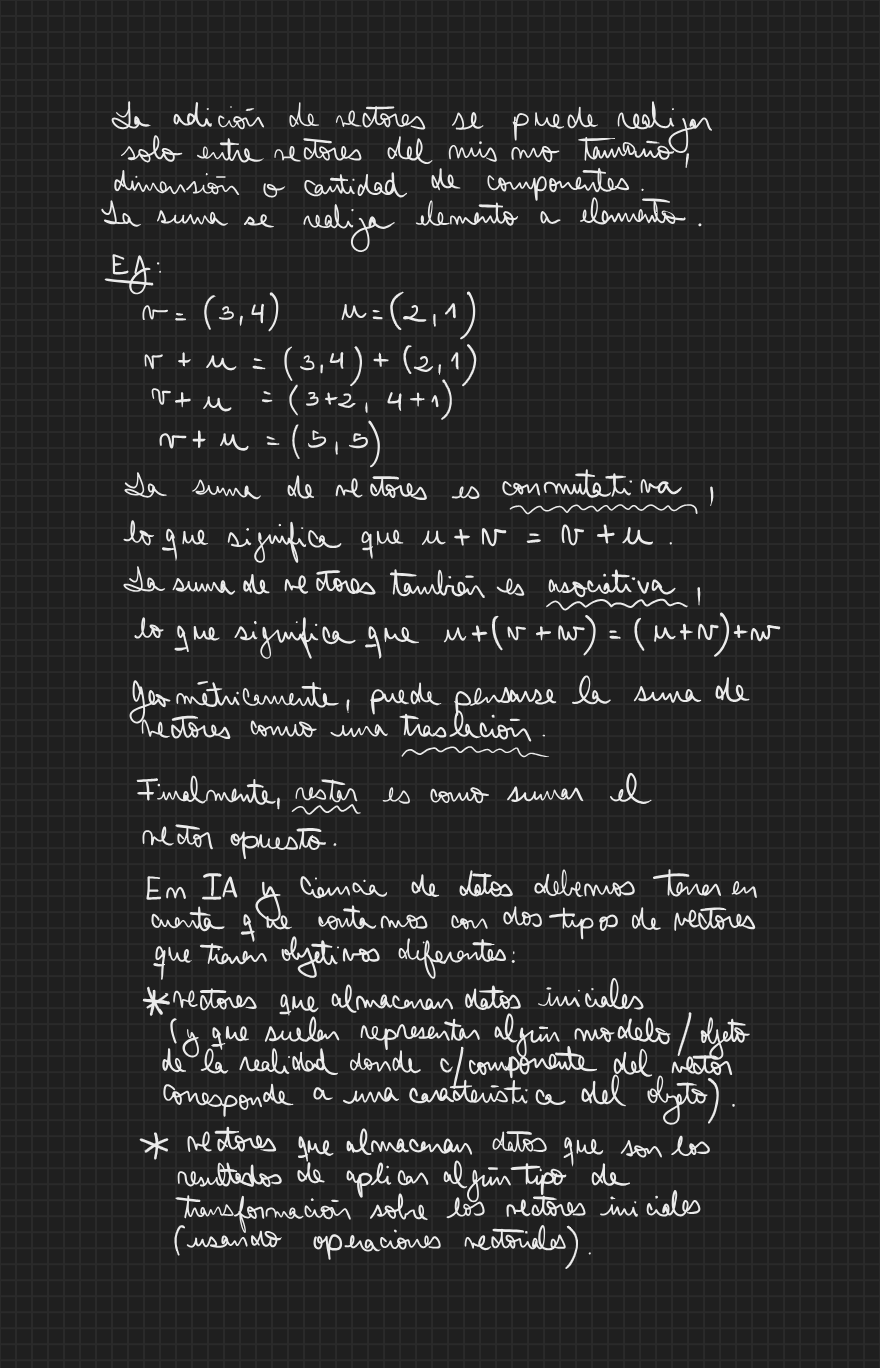 La adición de vectores se puede realizar
solo entre vectores del mismo tamaño,
dimensión o cantidad de componentes.
La suma se realiza elemento a elemento.
EJ:
v = (3,4) u = (2,1)
v + u = (3,4) + (2,1)
v + u = (3+2, 4+1)
v + u = (5,5)
La suma de vectores es conmutativa,
lo que significa que u + v = v + u.
La suma de vectores también es asociativa,
lo que significa que u+(v+w) = (u+v)+w
Geométricamente, puede pensarse la suma de
vectores como una traslación.
Finalmente, restar es como sumar el
vector opuesto.
En IA y Ciencia de datos debemos tener en
cuenta que contamos con dos tipos de vectores
que tienen objetivos diferentes:
* vectores que almacenan datos iniciales
(y que suelen representar algún modelo / objeto
de la realidad donde c/componente del vector
corresponde a una característica del objeto).
* vectores que almacenan datos que son los
resultados de aplicar algún tipo de
transformación sobre los vectores iniciales
(usando operaciones vectoriales).